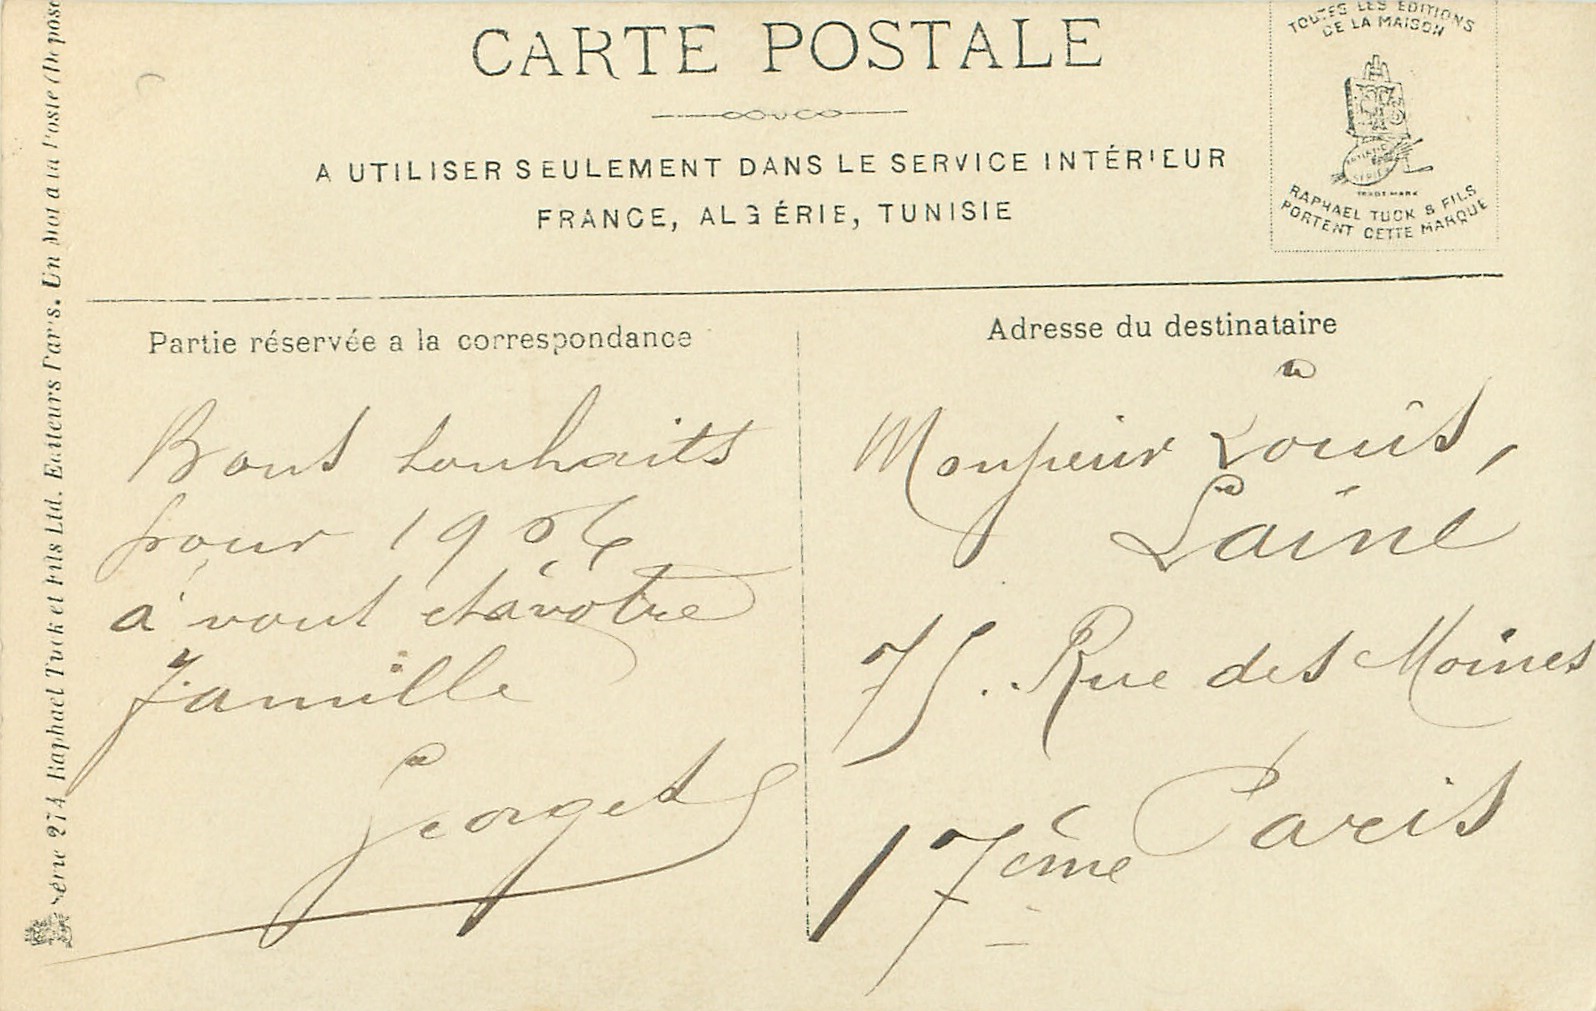 CARTE POSTALE
A UTILISER SEULEMENT DANS LE SERVICE INTÉRIEUR
FRANCE, ALGÉRIE, TUNISIE
TOUTES LES ÉDITIONS
DE LA MAISON
ARTISTIC
SERIES
TRADE MARK
RAPHAEL TUCK & FILS
PORTENT CETTE MARQUE
Série 274 Raphael Tuck et Fils Ltd. Editeurs Paris. Un Mot a la Poste (Déposé
Partie réservée a la correspondance
Bons souhaits
pour 1906
à vous et à votre
famille
Georges
Adresse du destinataire
Monsieur Louis,
Laîné
75. Rue des Moines
Paris
17ème